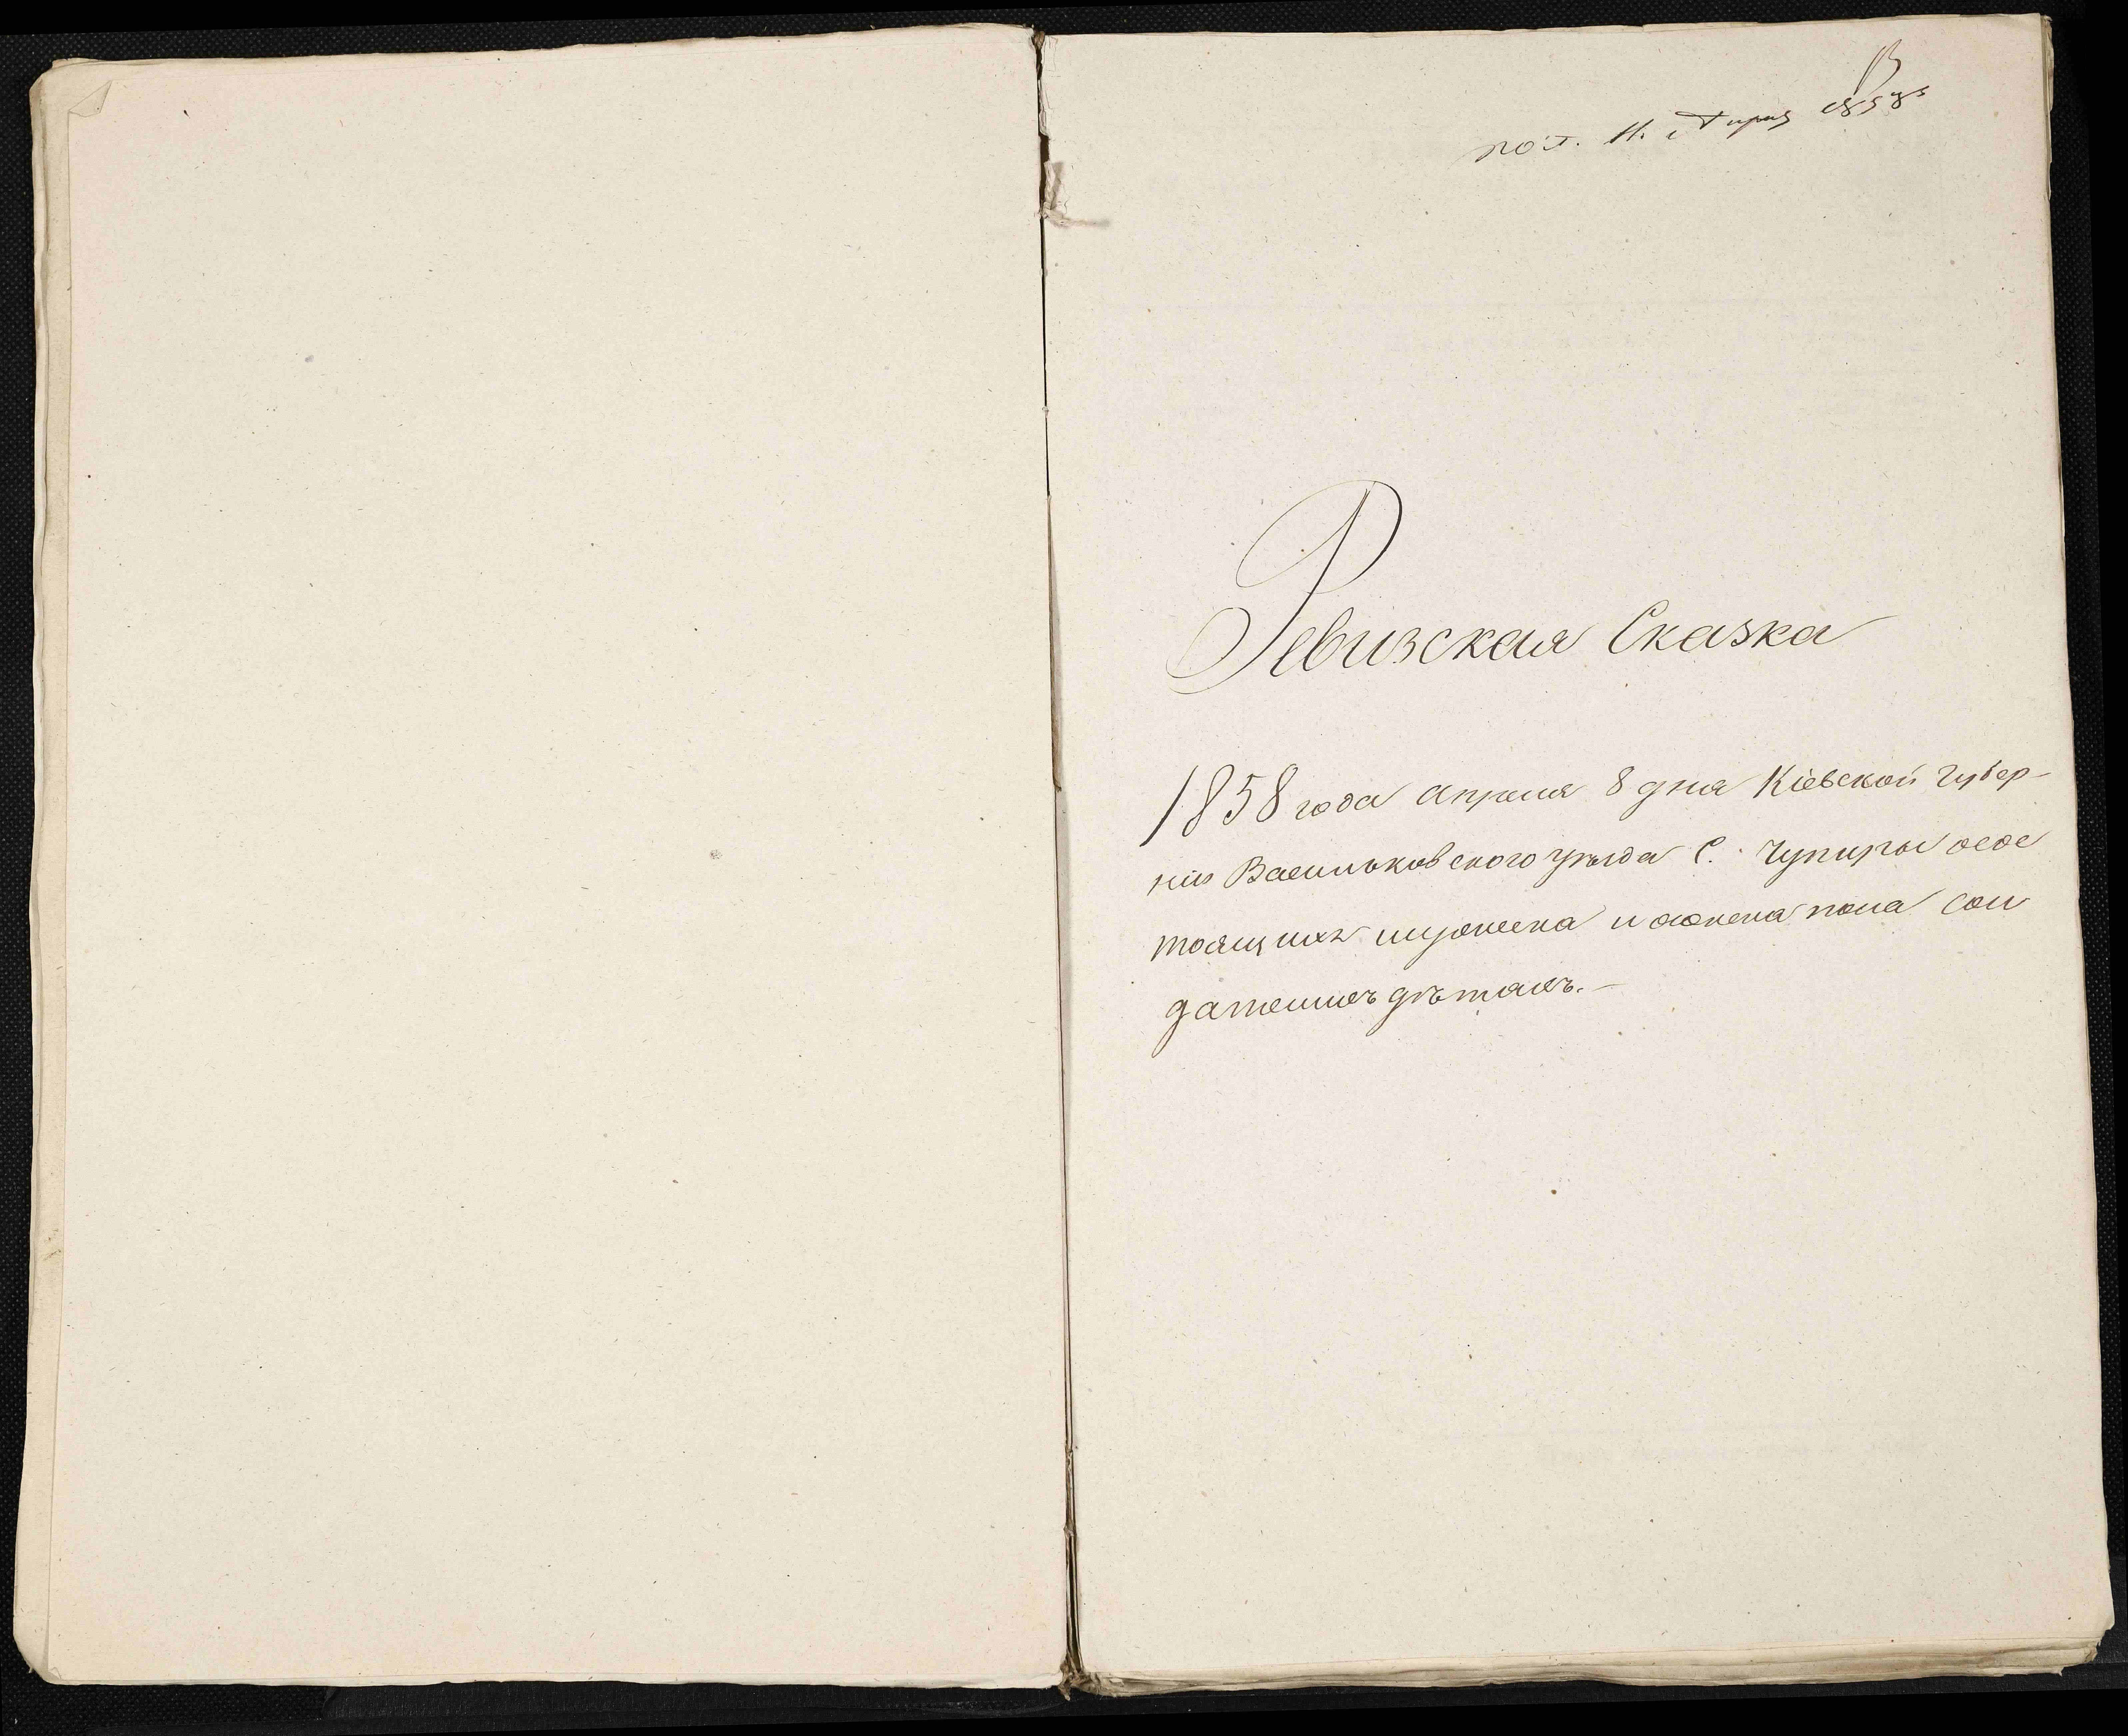 пол. 11. Апрѣ 1858
Ревизская Сказка
1858 года Апреля 8 дня Кіевской Губер-
ніи Васильковского уѣзда С. Чупиры о со
тоящихъ мужеска и женска пола сол
датскихъ дѣтахъ.-